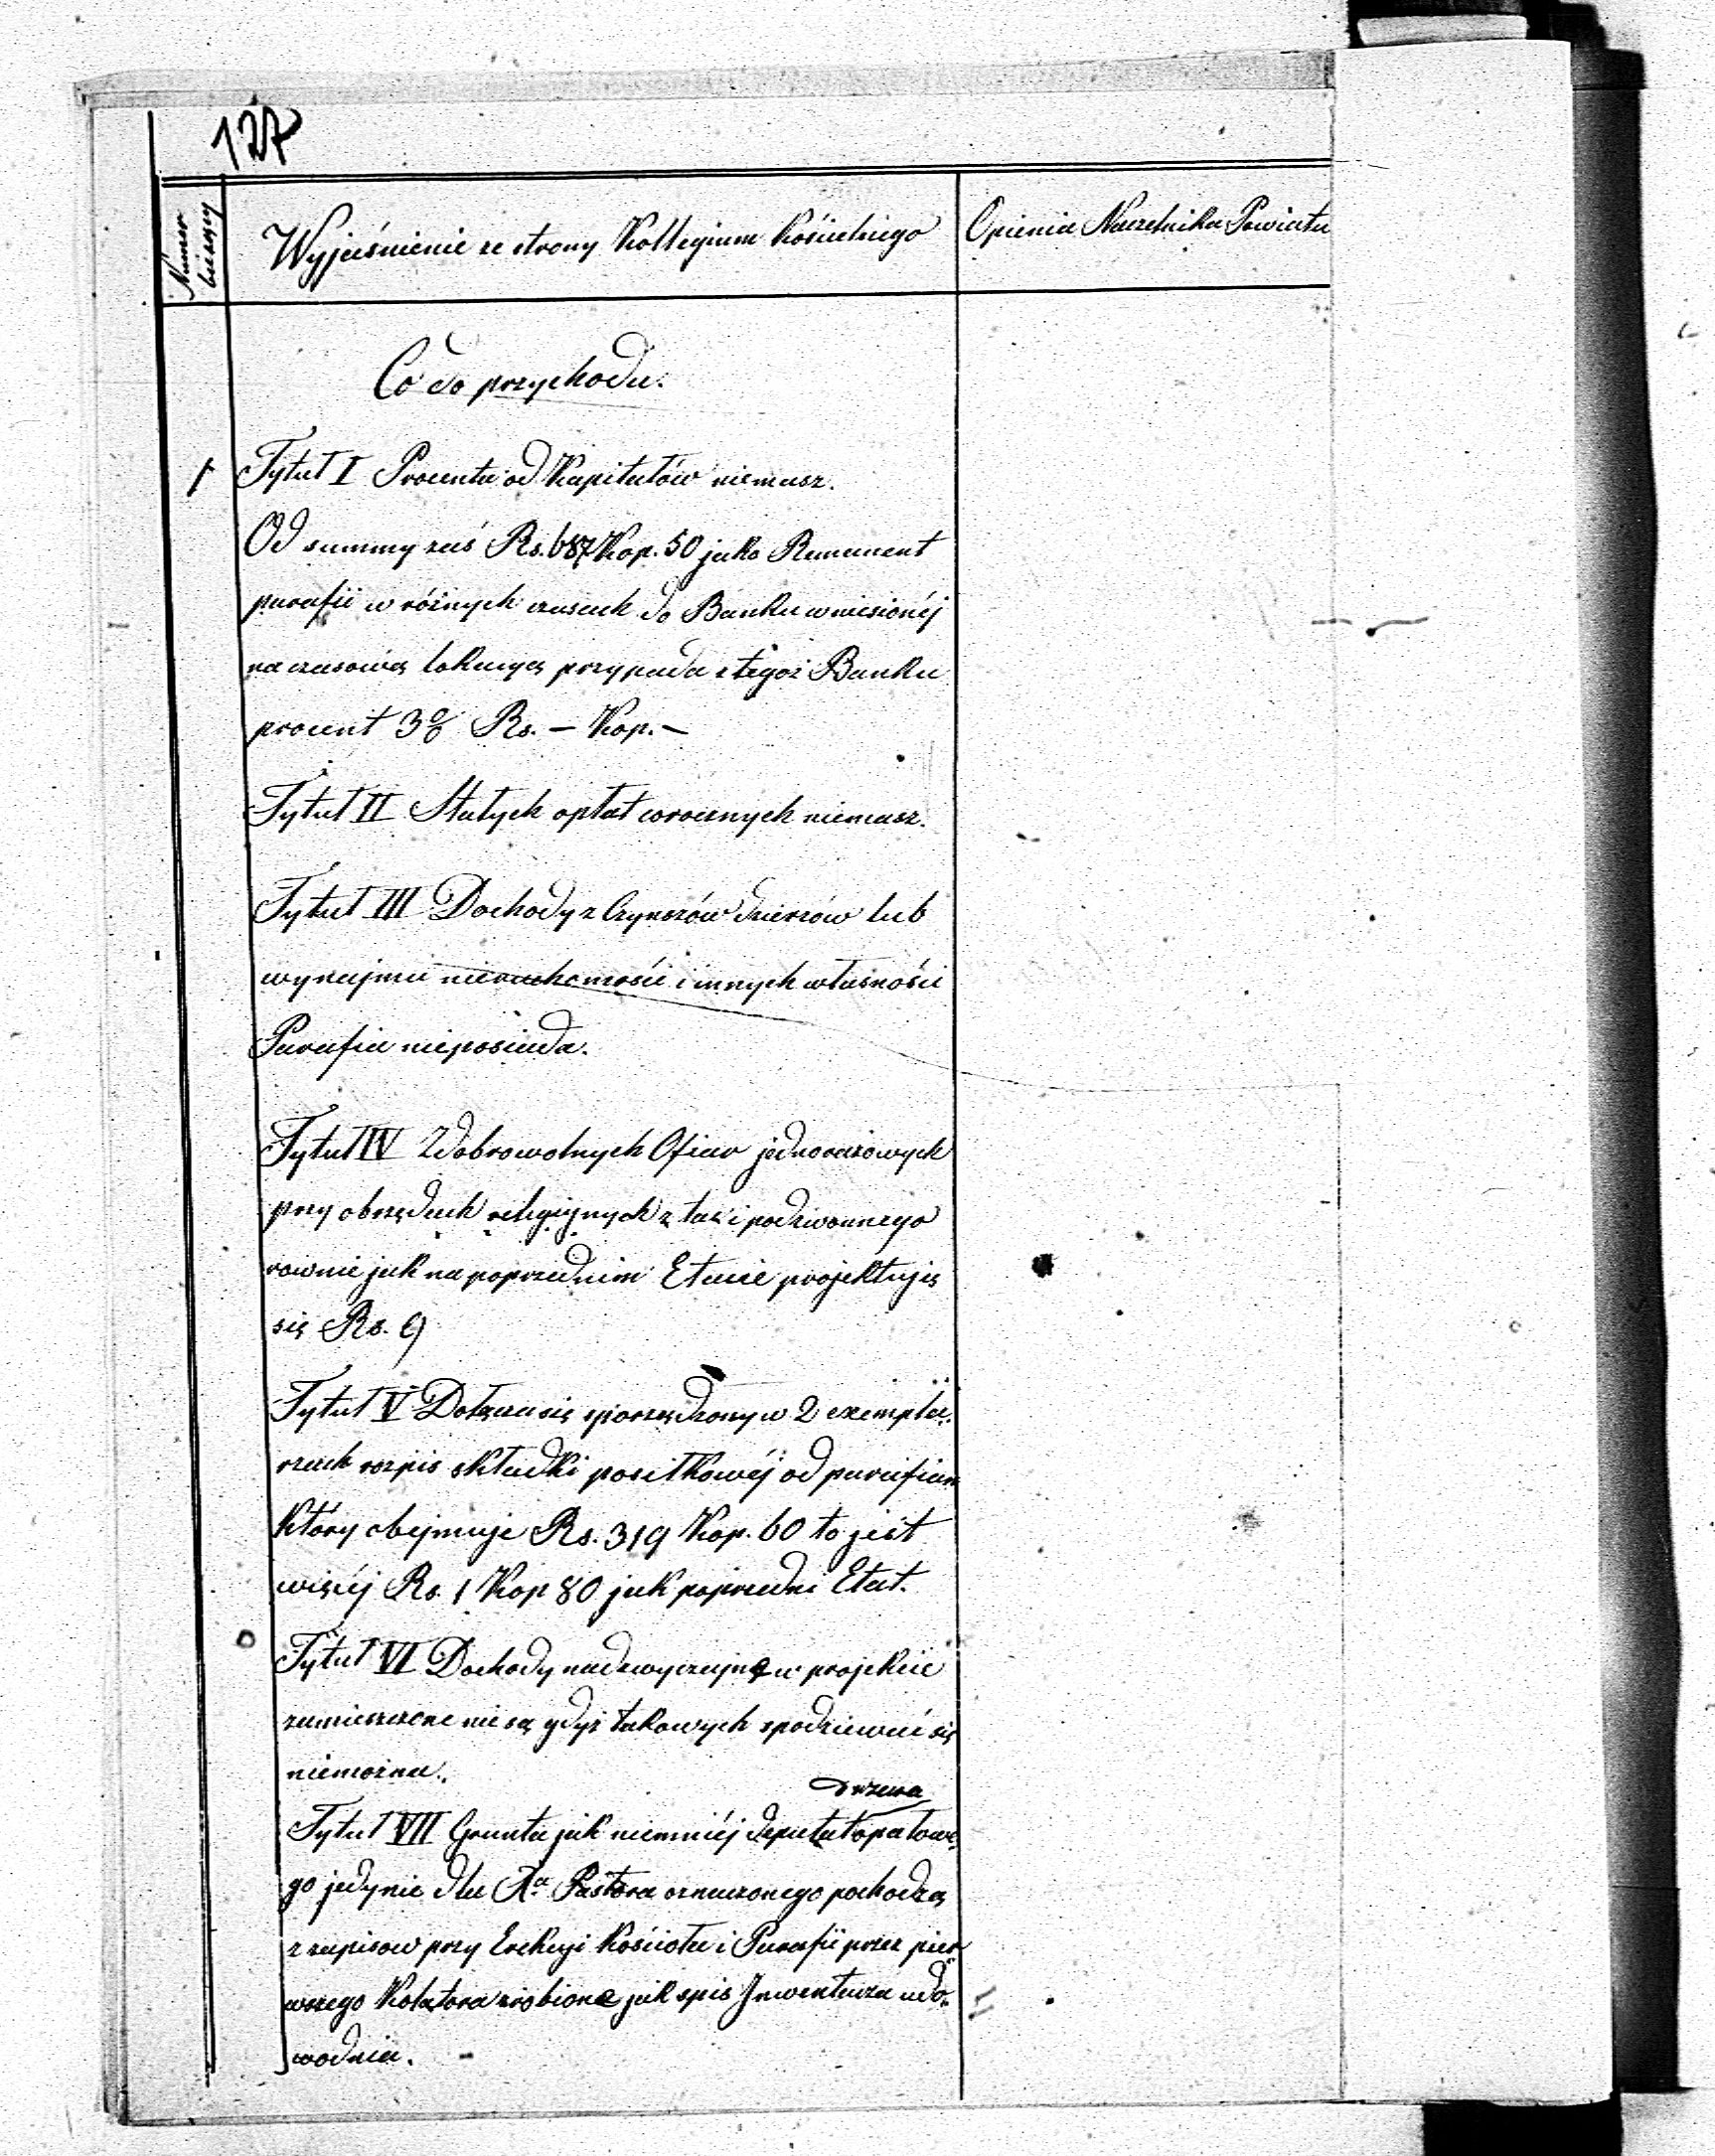 127
Numer bieżący
Wyjaśnienie ze strony Kollegium Kościelnego
Opienia Naczelnika Powiatu
Co do przychodu.
1 Tytuł I Procentu od Kapitałów niemasz.
Od summy zaś Rs. 687 Kop. 50 jako Remanent
parafii w różnych czasach do Banku wniesionéj
na czasową lokacyą przypada z tegoż Banku
procent 3% Rs. – Kop. –
Tytuł II Stałych opłat corocznych niemasz.
Tytuł III Dochody z Czynszów dzierzów lub
wynajmu nieruchomości i innych własności
Parafia nieposiada.
Tytuł IV Z dobrowolnych Ofiar jednorazowych
przy obrzędach religijnych z tac i podzwonnego
rownie jak na poprzednim Etacie projektuje
się Rs. 9
Tytuł V Dołącza się sporządzony w 2 exempla-
rzach rozpis składki posiłkowéj od parafian
który obejmuje Rs. 319 Kop. 60 to jest
więcéj Rs. 1 Kop 80 jak poprzedni Etat.
Tytuł VI Dochody nadzwyczajne w projekcie
zamieszczone nie są gdyż takowych spodziewać się
niemożna.
drzewa
Tytuł VII Grunta jak niemniéj deputat opałowe-
go jedynie dla Xa Pastora oznaczonego pochodzą
z zapisow przy Erekcyi Kościoła i Parafii przez pier-
wszego Kolatora zrobione jak spis Inwentarza udo-
wodnia. –